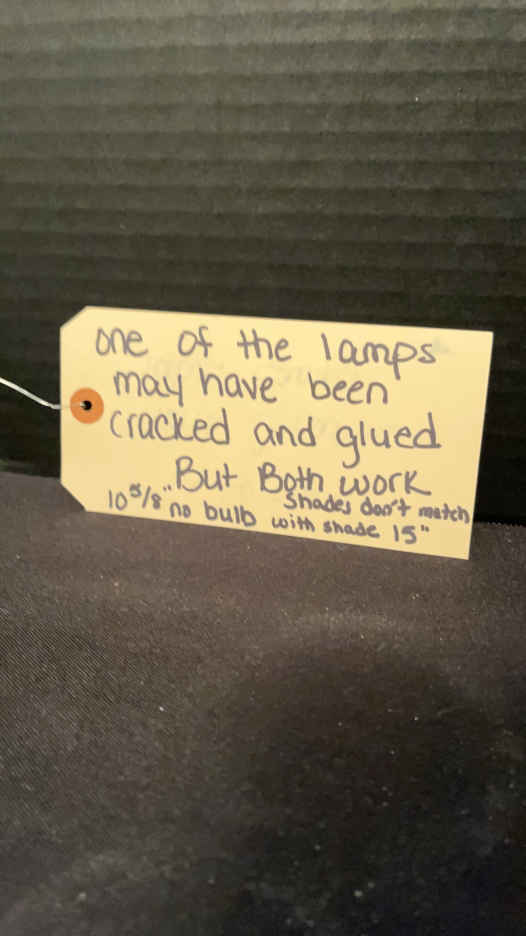 one of the lamps
may have been
cracked and glued
But Both work
Shades don't match
10 5/8" no bulb with shade 15"